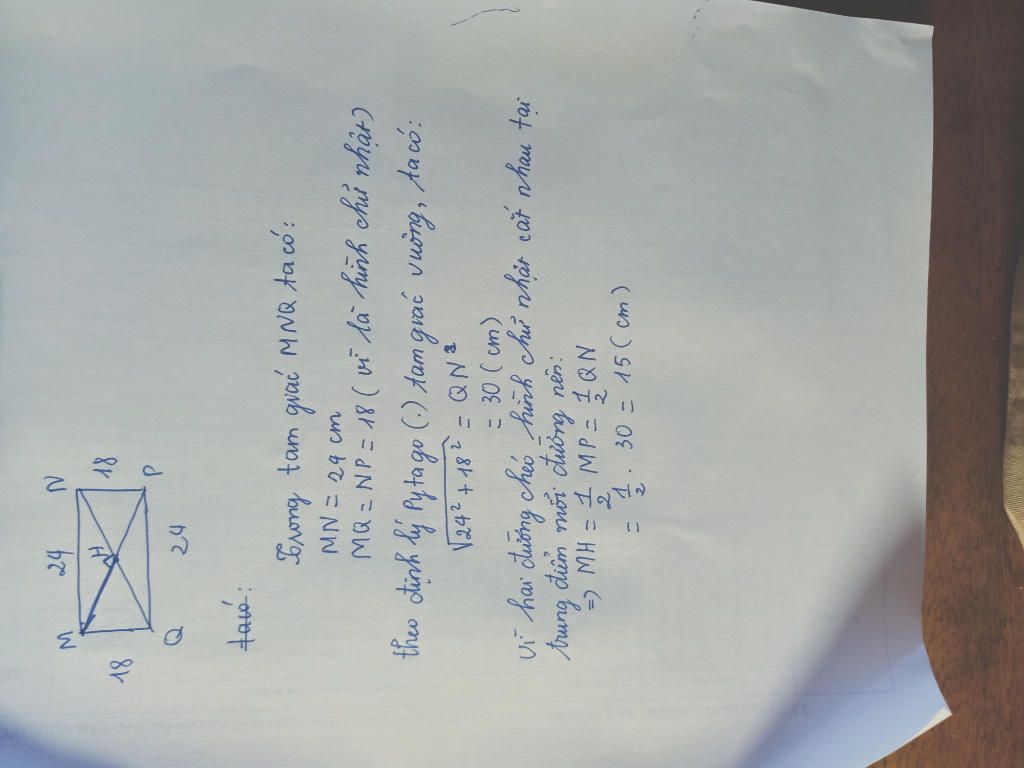 M 24 N
18 H 18
Q 24 P
ta có:
Trong tam giác MNQ ta có:
MN = 24 cm
MQ = NP = 18 (vì là hình chữ nhật)
theo định lý Pytago (.) tam giác vuông, ta có:
√24² + 18² = QN²
= 30 (cm)
Vì hai đường chéo hình chữ nhật cắt nhau tại
trung điểm mỗi đường nên:
=) MH = 1/2 MP = 1/2 QN
= 1/2 . 30 = 15 (cm)